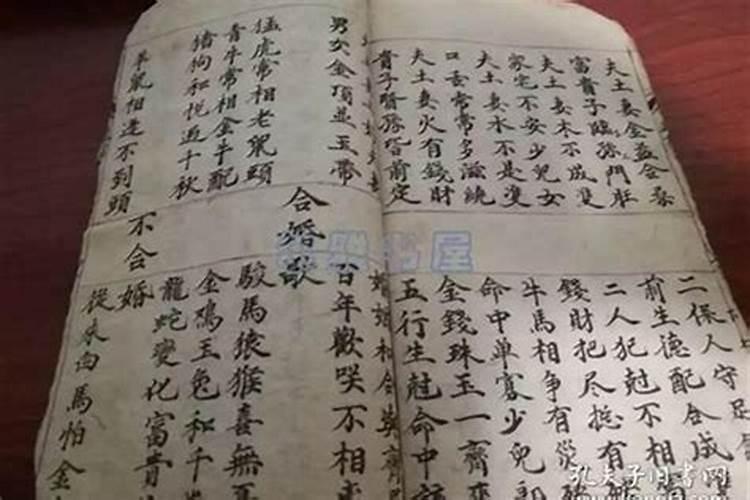 夫土妻金益合
富貴子臨孫門
夫土妻木不成雙
家宅不安少兒女
夫土妻水不是雙
口舌常常多滋繞
夫土妻火有錢財
貴子賢孫皆前定
二保人守足
前生德配合成
二人犯尅不相
錢財把尽有
牛馬相争有災
命中單寡少兒郎
金錢珠玉一齊來
五行生尅命中該
婚姻和合莫
男女金頂並玉帶
猛虎常相老鼠頭
青牛常相金牛配
猪狗和悦过千秋
羊鼠相逢不到頭
合婚歌
百年歡咲不相
駿馬猿猴喜無
金鸡玉兔和千
龍蛇變化富貴
不合婚
從来白馬怕金
书屋
孔夫子旧书网